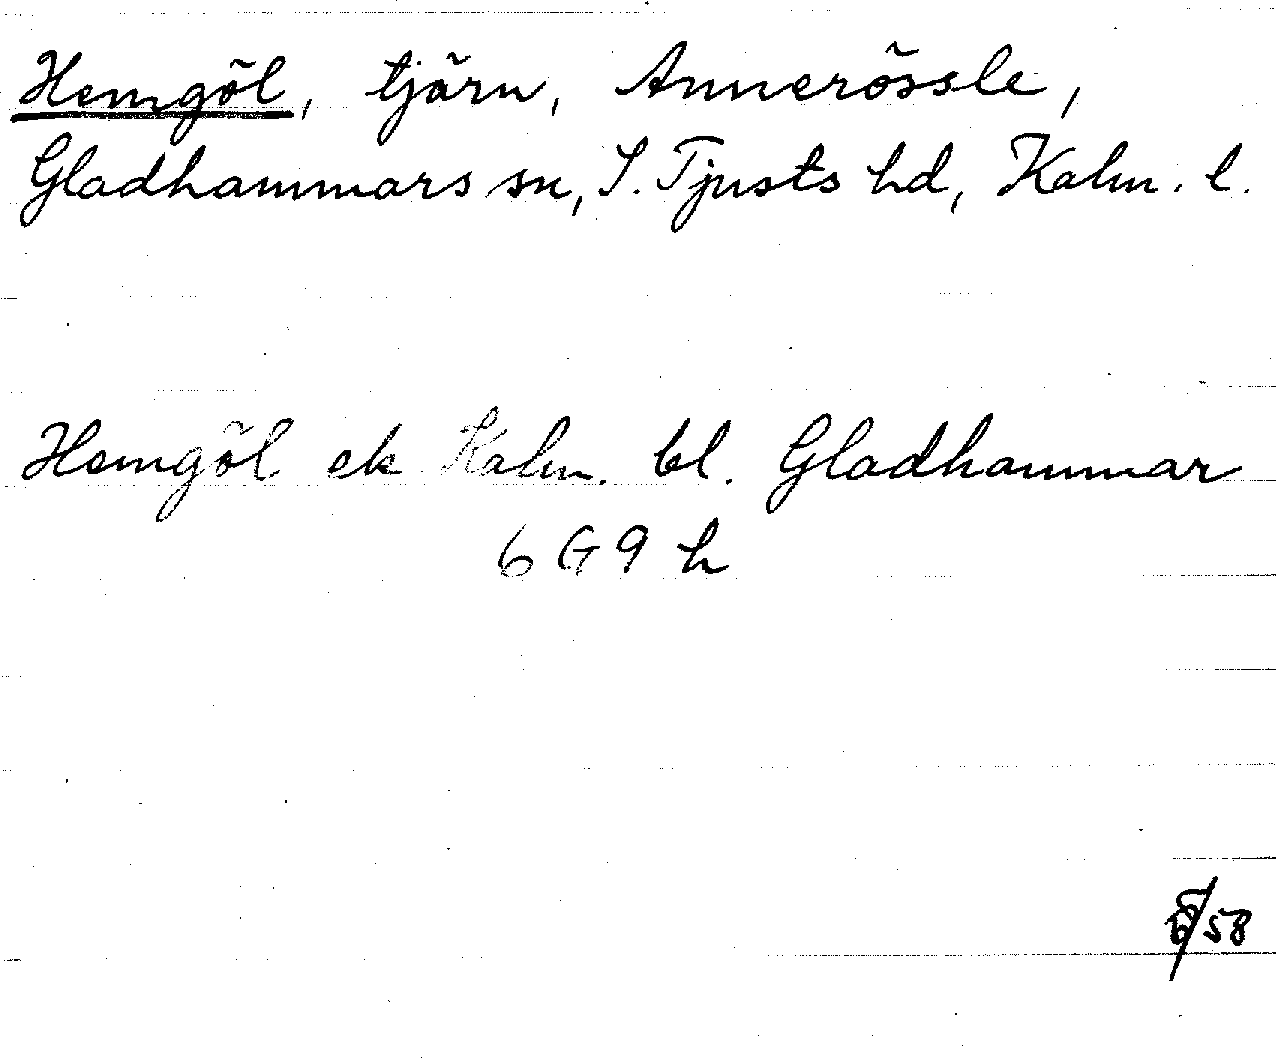 Hemgöl, tjärn, Annerössle,
Gladhammars sn, S. Tjusts hd, Kalm. l.
Hemgöl ek Kalm. bl. Gladhammar
6 G 9 h
58